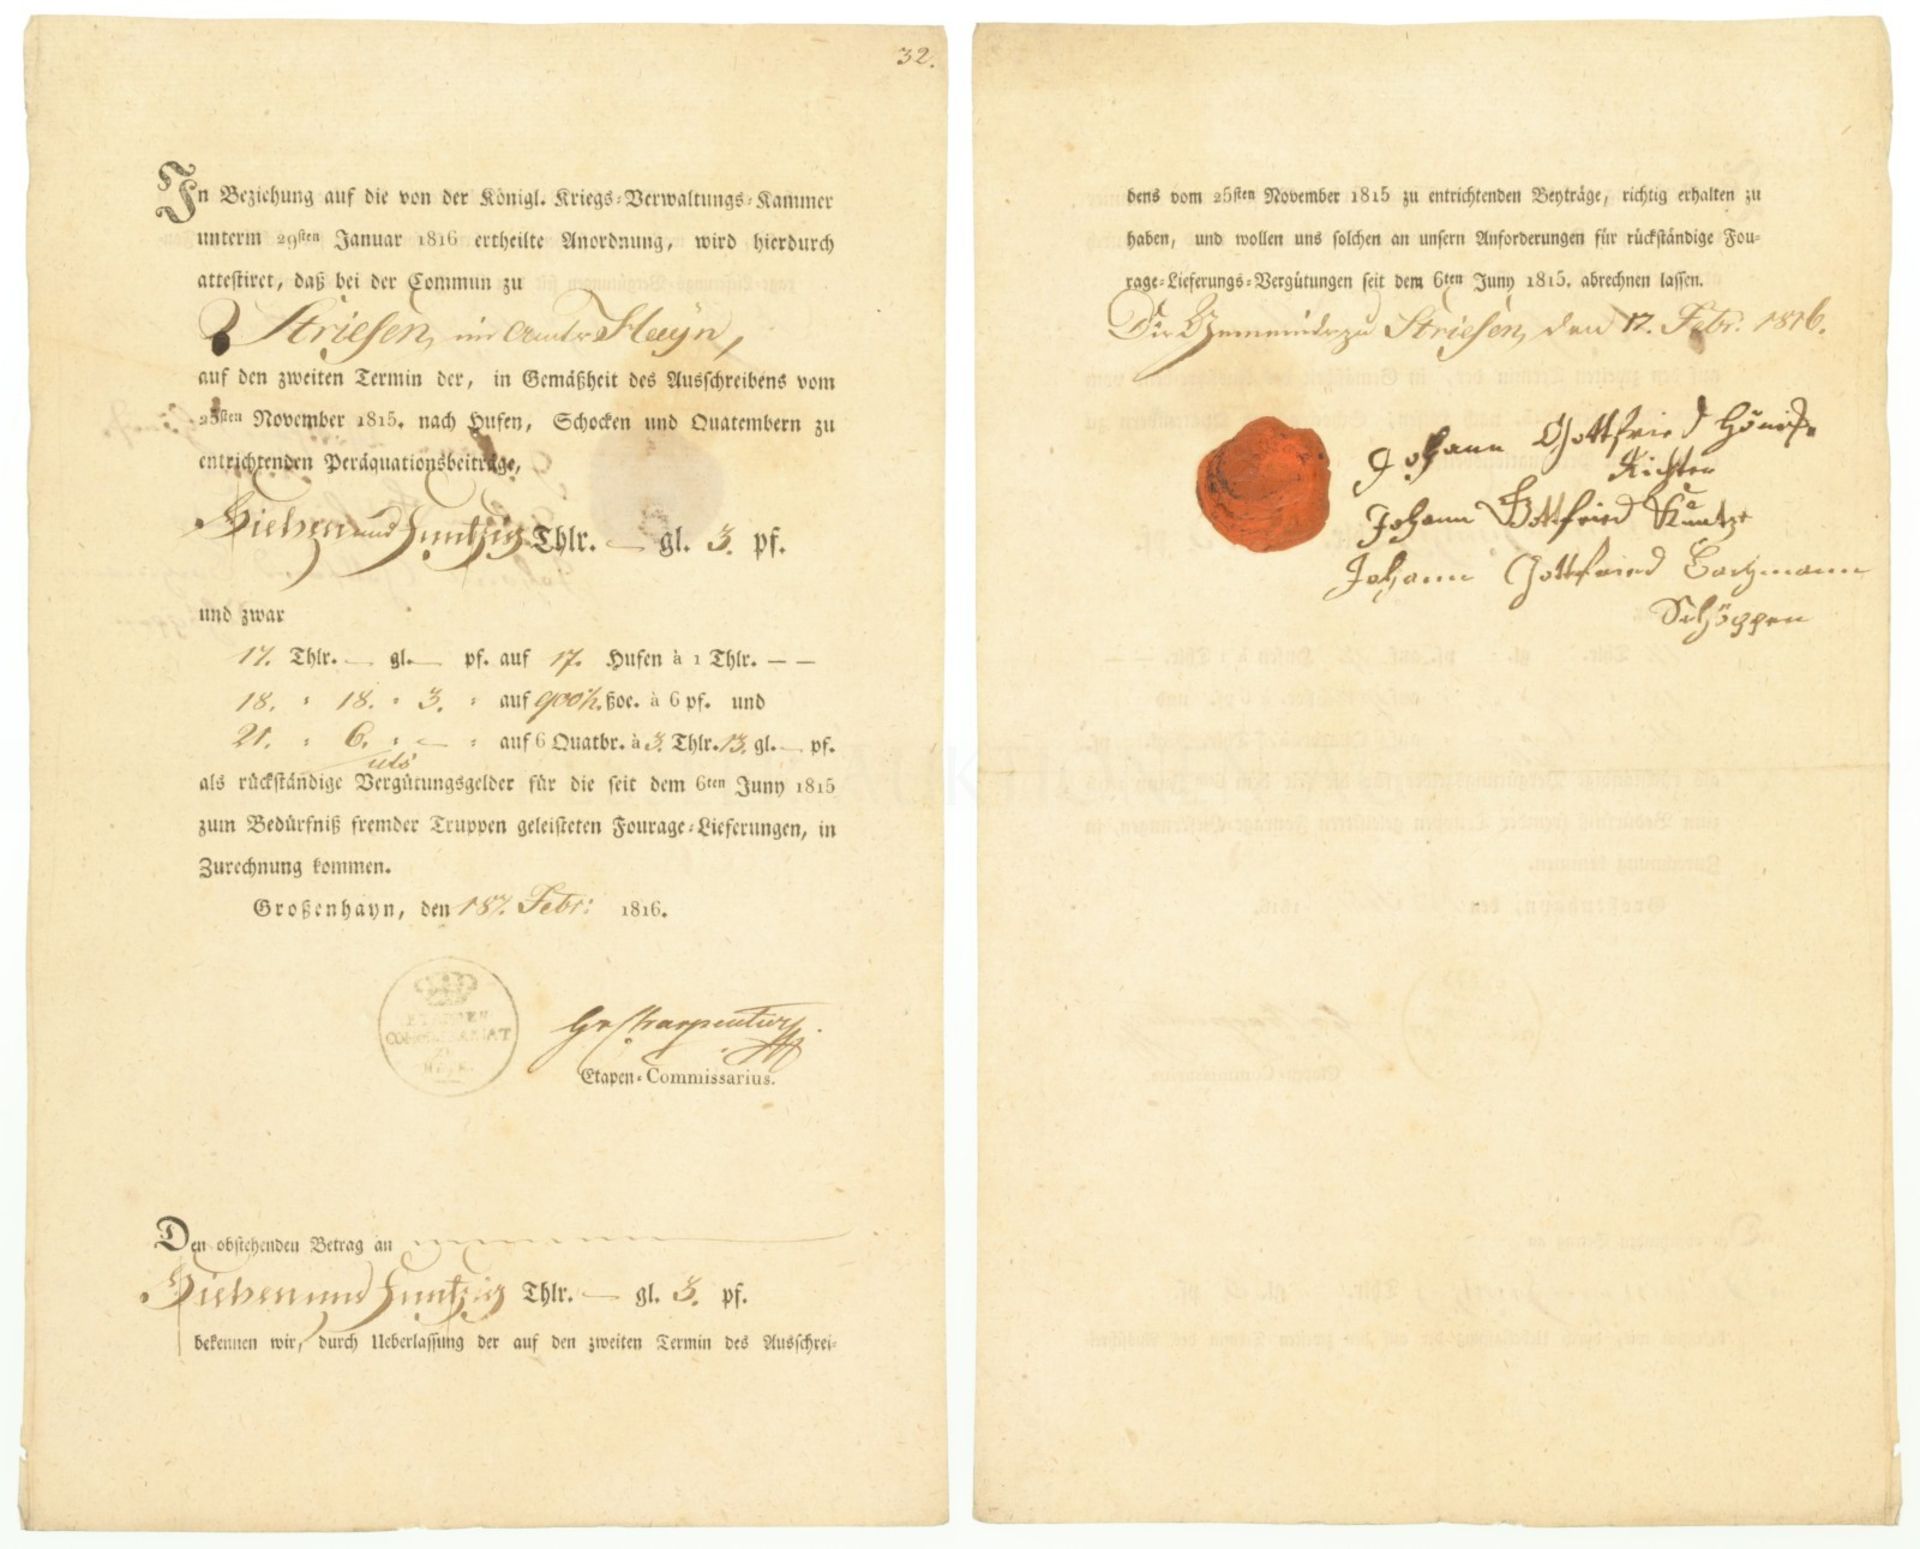 32.
In Beziehung auf die von der Königl. Kriegs-Verwaltungs-Kammer
unterm 29sten Januar 1816 ertheilte Anordnung, wird hierdurch
attestiret, daß bei der Commun zu
Striesen, im Amte Hayn,
auf den zweiten Termin der, in Gemäßheit des Ausschreibens vom
25sten November 1815. nach Hufen, Schocken und Quatembern zu
entrichtenden Peräquationsbeiträge,
Sieben und Funfzig Thlr. — gl. 3. pf.
und zwar
17. Thlr. — gl. — pf. auf 17. Hufen à 1 Thlr. — —
18. = 18. = 3. = auf 900½. ßoc. à 6 pf. und
21. = 6. = — = auf 6 Quatbr. à 3. Thlr. 13. gl. — pf.
uts
als rückständige Vergütungsgelder für die seit dem 6ten Juny 1815
zum Bedürfniß fremder Truppen geleisteten Fourage-Lieferungen, in
Zurechnung kommen.
Großenhayn, den 18. Febr: 1816.
ETAPPEN
COMMISSARIAT
Charpentier
Etapen-Commissarius.
Den obstehenden Betrag an
Sieben und Funfzig Thlr. — gl. 3. pf.
bekennen wir, durch Ueberlassung der auf den zweiten Termin des Ausschrei-
dens vom 25sten November 1815 zu entrichtenden Beyträge, richtig erhalten zu
haben, und wollen uns solchen an unsern Anforderungen für rückständige Fou-
rage-Lieferungs-Vergütungen seit dem 6ten Juny 1815. abrechnen lassen.
Die Gemeinde zu Striesen, den 17. Febr: 1816.
Johann Gottfried
Richter
Johann Gottfried Kuntze
Johann Gottfried Bachmann
Schöppen